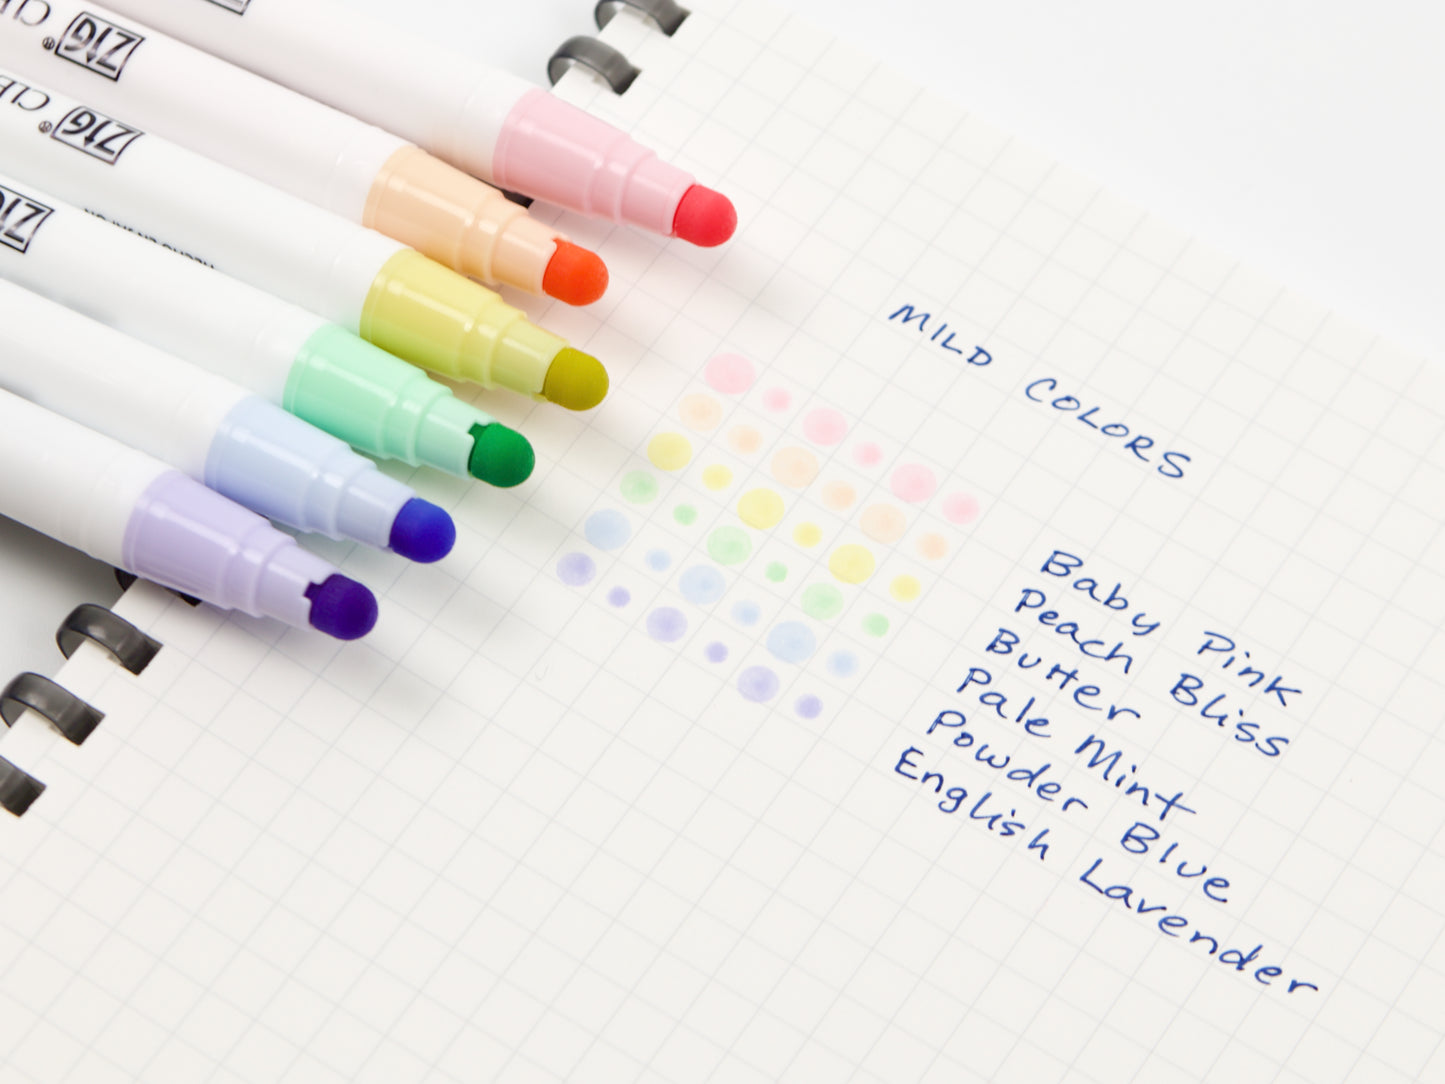 ZIG
ZIG
ZIG
MILD COLORS
Baby Pink
Peach Bliss
Butter
Pale Mint
Powder Blue
English Lavender